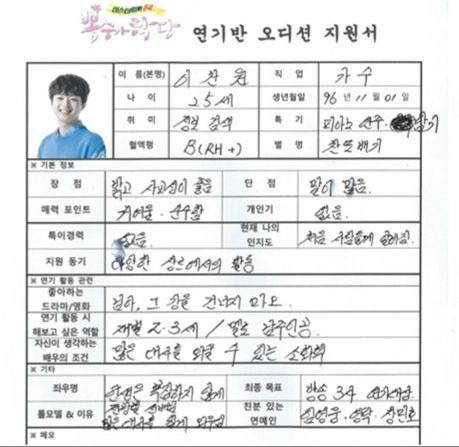 미스터트롯F4
뽕숭아학당 연기반 오디션 지원서
이 름(본명) 이찬원 직 업 가수
나 이 25세 생년월일 96년 11월 01일
취 미 정보 검색 특 기 피아노 연주.
혈액형 B(RH+) 별 명 찬또배기
※ 기본 정보
장 점 밝고 사교성이 좋음 단 점 말이 많음.
매력 포인트 귀여움. 순수함 개인기 없음.
특이경력 없음. 현재 나의 인지도
지원 동기 다양한 장르에서의 활동
※ 연기 활동 관련
좋아하는 드라마/영화 님아, 그 강을 건너지 마오.
연기 활동 시 해보고 싶은 역할 재벌 2.3세 / 멜로 남주인공
자신이 생각하는 배우의 조건 많은 대사를 외울 수 있는 소화력
※ 기타
좌우명 최종 목표 방송 3사 연기대상
롤모델 & 이유 친분 있는 연예인 임영웅. 영탁. 장민호
※ 메모